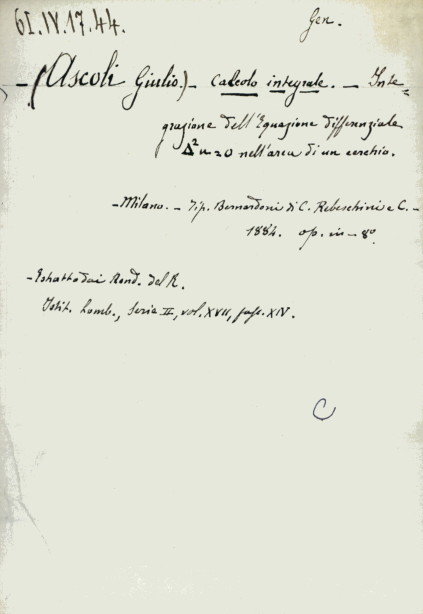 61.IV.17.44.
Gen.
-(Ascoli Giulio.)- Calcolo integrale. - Inte=
grazione dell'Equazione differenziale
Δ²u=0 nell'area di un cerchio.
-Milano. - Tip. Bernardoni di C. Rebeschini e C. -
1884. op. in-8°.
-Estratto dai Rend. del R.
Istit. Lomb., Serie II, vol. XVII, fasc. XIV.
C